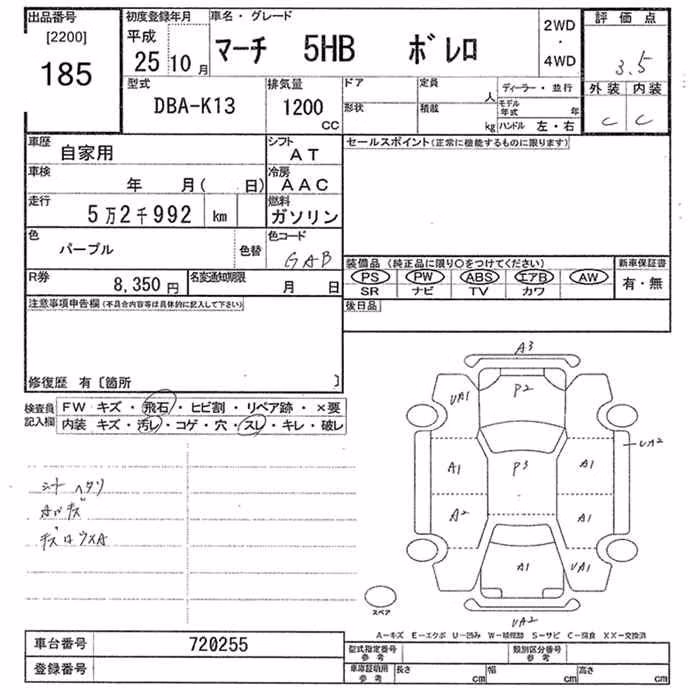 出品番号
[2200]
185
初度登録年月
平成
25 10 月
車名・グレード
マーチ 5HB ボレロ
2WD
・
4WD
評価点
3.5
外装 内装
C C
型式
DBA-K13
排気量
1200
CC
ドア
形状
定員
人
積載
kg
ディーラー・並行
モデル年式 年
ハンドル 左・右
車歴
自家用
シフト
AT
車検
年 月( 日)
冷房
AAC
走行
5万2千992 km
燃料
ガソリン
色
パープル
色替
色コード
GAB
R券
8,350 円
名変通知期限
月 日
セールスポイント(正常に機能するものに限ります)
装備品 (純正品に限り○をつけてください)
PS PW ABS エアB AW
SR ナビ TV カワ
新車保証書
有・無
後日品
注意事項申告欄(不具合内容等は具体的に記入して下さい)
修復歴 有〔箇所 〕
検査員
記入欄
FW キズ・飛石・ヒビ割・リペア跡・×要
内装 キズ・汚レ・コゲ・穴・スレ・キレ・破レ
シート ヘタリ
キズ
A3
UA1
P2
UA2
A1
P3
A1
A2
A1
A1
UA1
UA2
スペア
A-キズ E-エクボ U-凹み W-補修跡 S-サビ C-腐食 XX-交換済
車台番号
720255
登録番号
型式指定番号
参考
類別区分番号
参考
車庫証明用
参考
長さ
cm
幅
cm
高さ
cm